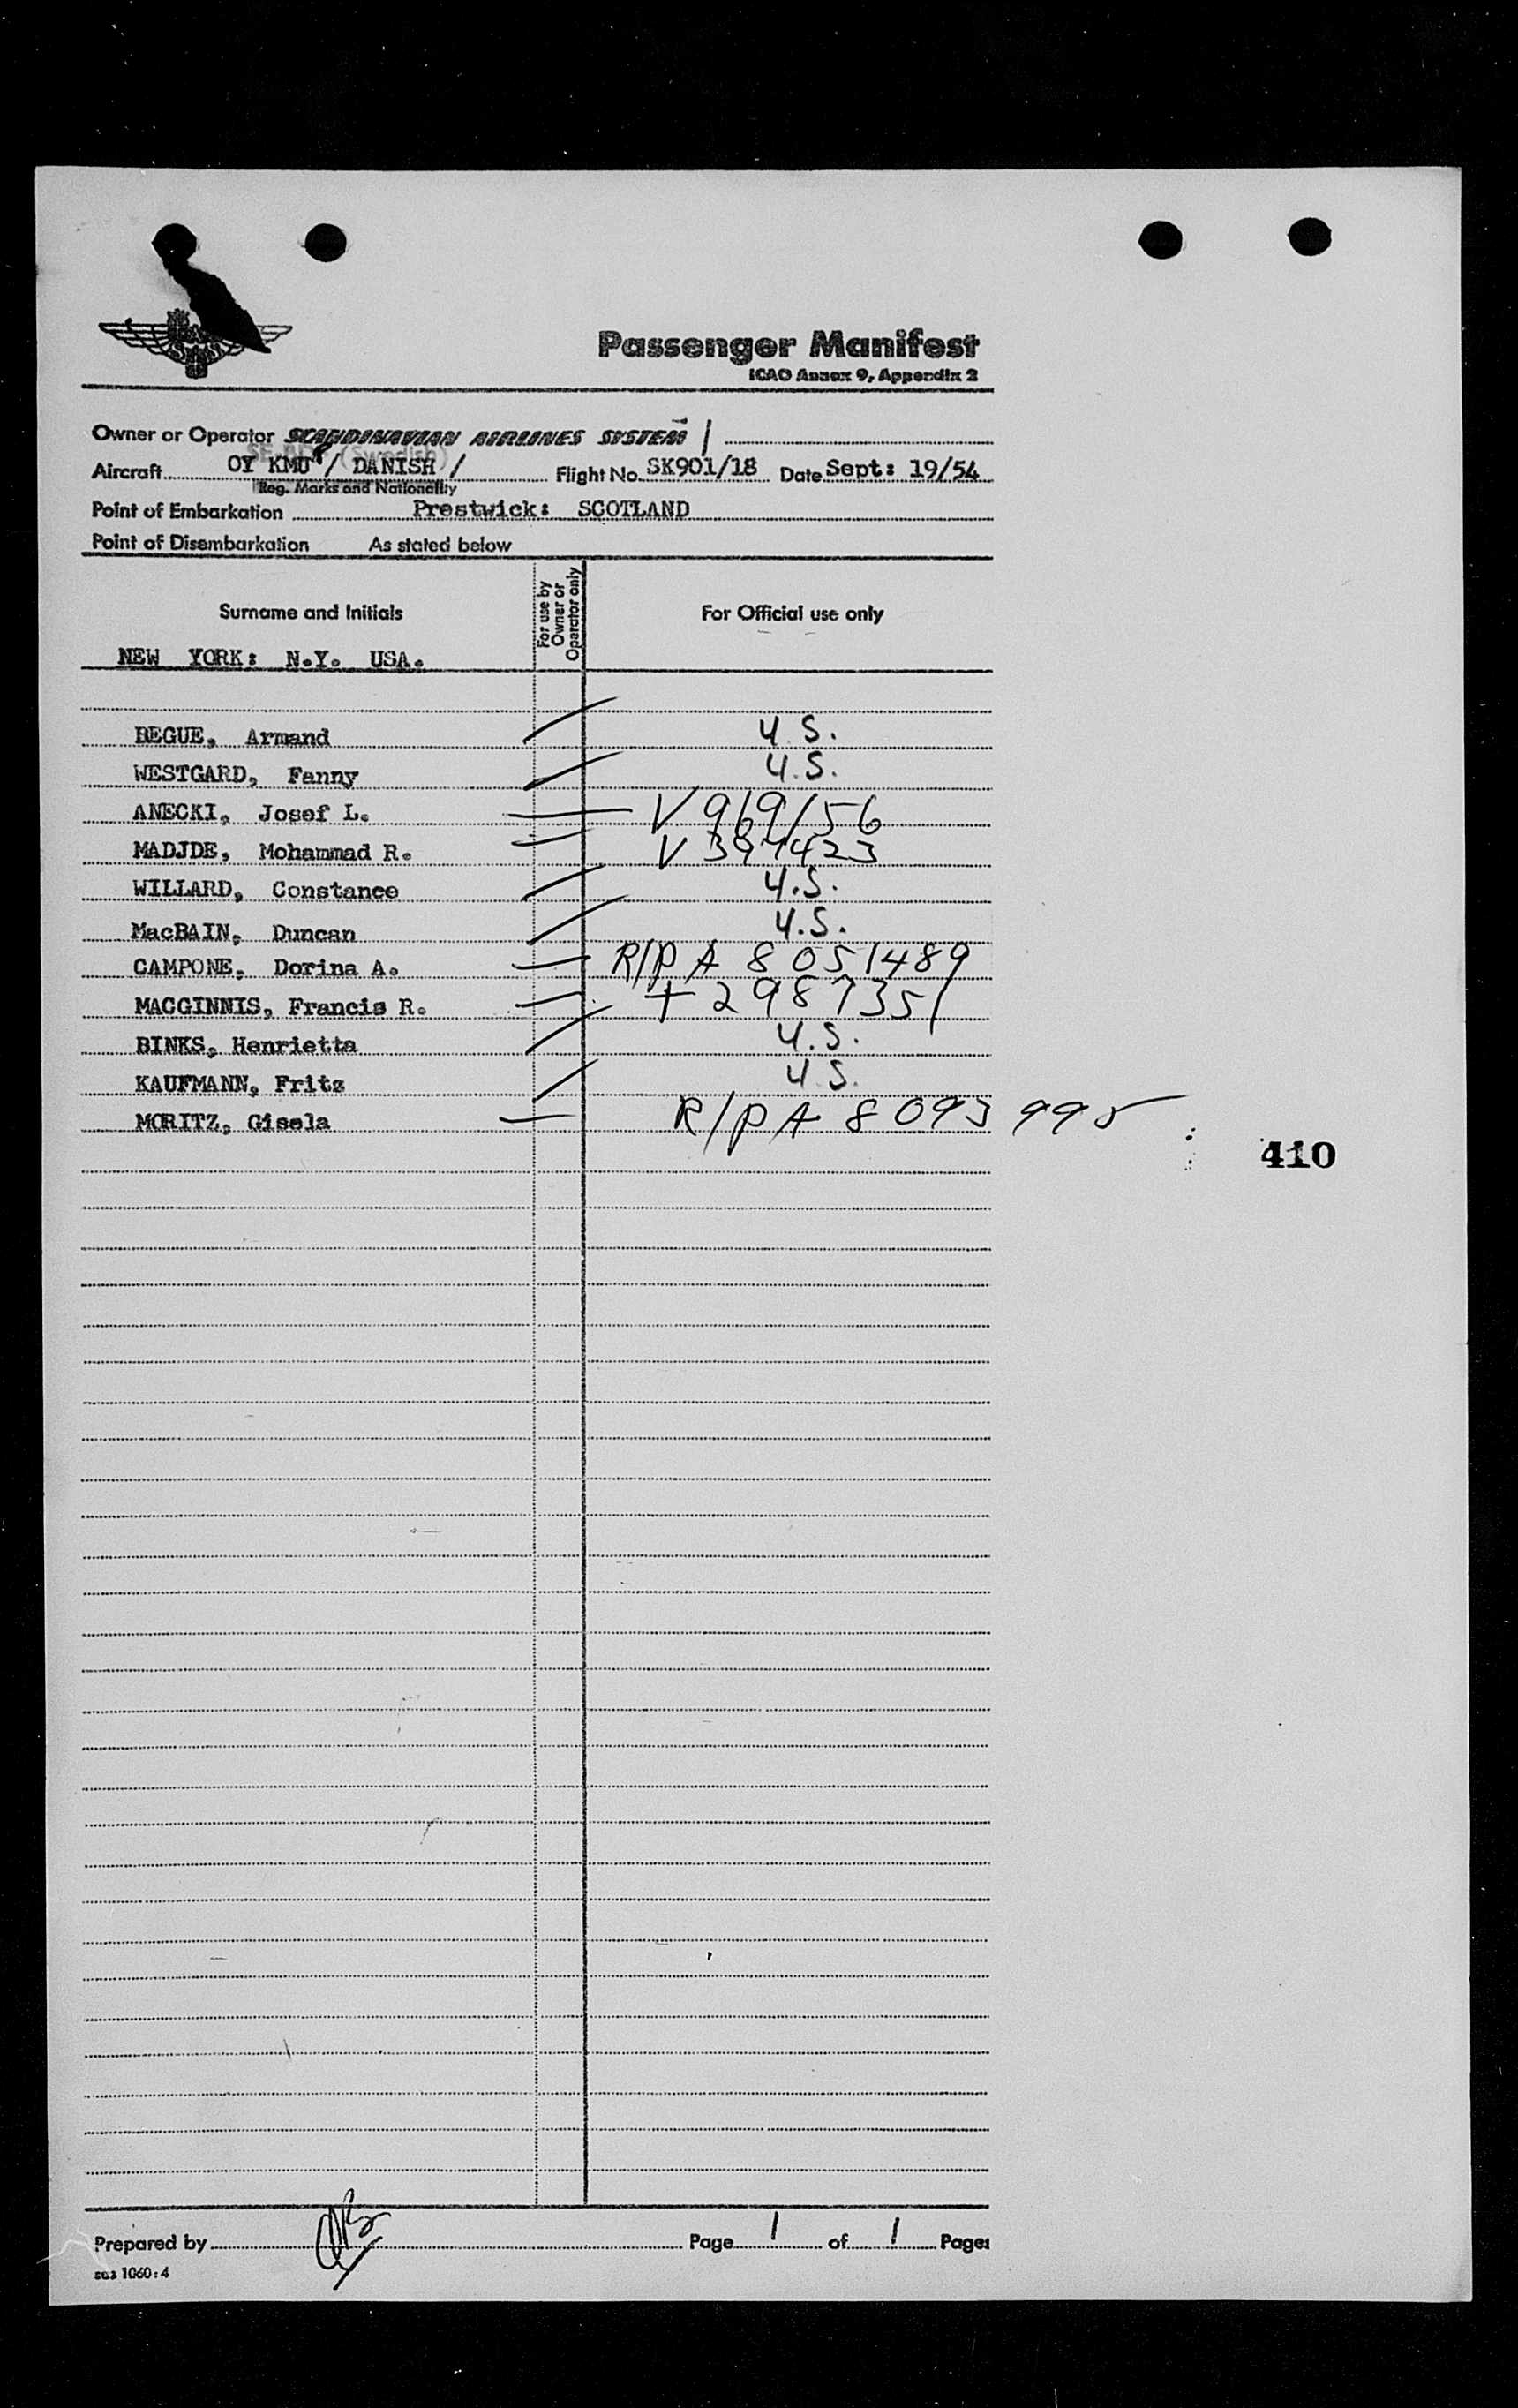 SAS
Passenger Manifest
ICAO Annex 9, Appendix 2
Owner or Operator SCANDINAVIAN AIRLINES SYSTEM /
Aircraft OY KMU / DANISH / Flight No. SK901/18 Date Sept: 19/54
(Swedish)
Reg. Marks and Nationality
Point of Embarkation Prestwick: SCOTLAND
Point of Disembarkation As stated below
Surname and Initials For use by Owner or Operator only For Official use only
NEW YORK: N.Y. USA.
BEGUE, Armand U.S.
WESTGARD, Fanny U.S.
ANECKI, Josef L. V 969156
MADJDE, Mohammad R. V 397423
WILLARD, Constance U.S.
MacBAIN, Duncan U.S.
CAMPONE, Dorina A. R/P A 8051489
MACGINNIS, Francis R. + 2987351
BINKS, Henrietta U.S.
KAUFMANN, Fritz U.S.
MORITZ, Gisela R/P A 8093995
410
Prepared by Page 1 of 1 Pages
sas 1060:4